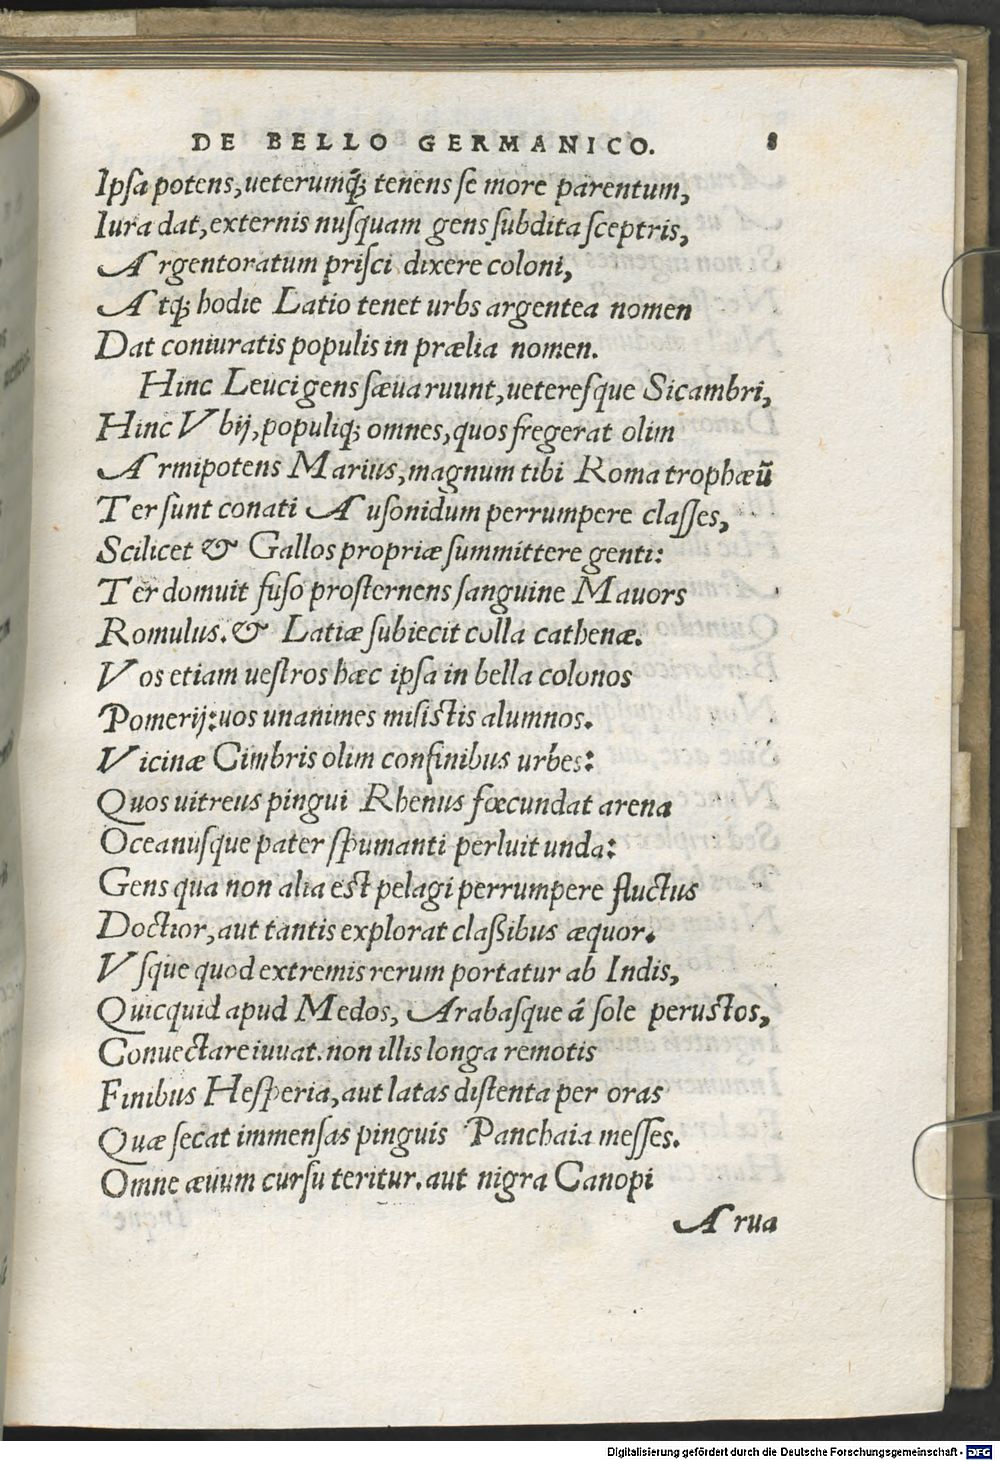 DE BELLO GERMANICO. 8
Ipsa potens, ueterumq́; tenens se more parentum,
Iura dat, externis nusquam gens subdita sceptris,
Argentoratum prisci dixere coloni,
Atq; hodie Latio tenet urbs argentea nomen
Dat coniuratis populis in prælia nomen.
Hinc Leuci gens sæua ruunt, ueteresque Sicambri,
Hinc Vbij, populiq; omnes, quos fregerat olim
Armipotens Marius, magnum tibi Roma trophæū
Ter sunt conati Ausonidum perrumpere classes,
Scilicet & Gallos propriæ summittere genti:
Ter domuit fuso prosternens sanguine Mauors
Romulus. & Latiæ subiecit colla cathenæ.
Vos etiam uestros hæc ipsa in bella colonos
Pomerij: uos unanimes misistis alumnos.
Vicinæ Cimbris olim confinibus urbes:
Quos uitreus pingui Rhenus fœcundat arena
Oceanusque pater spumanti perluit unda:
Gens qua non alia est pelagi perrumpere fluctus
Doctior, aut tantis explorat claßibus æquor.
Vsque quod extremis rerum portatur ab Indis,
Quicquid apud Medos, Arabasque á sole perustos,
Conuectare iuuat. non illis longa remotis
Finibus Hesperia, aut latas distenta per oras
Quæ secat immensas pinguis Panchaia messes.
Omne æuum cursu teritur. aut nigra Canopi
Arua
Digitalisierung gefördert durch die Deutsche Forschungsgemeinschaft - DFG